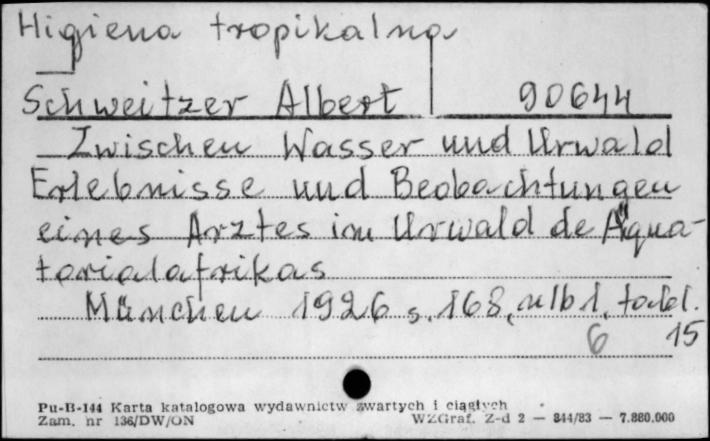 Higiena tropikalna
Schweitzer Albert 90644
Zwischen Wasser und Urwald
Erlebnisse und Beobachtungen
eines Arztes im Urwald de Äqua-
torialafrikas
München 1926 s. 168, alb 1, tabl.
6 15
Pu-B-144 Karta katalogowa wydawnictw zwartych i ciągłych
Zam. nr 136/DW/ON WZGraf. Z-d 2 — 844/83 — 7.880.000